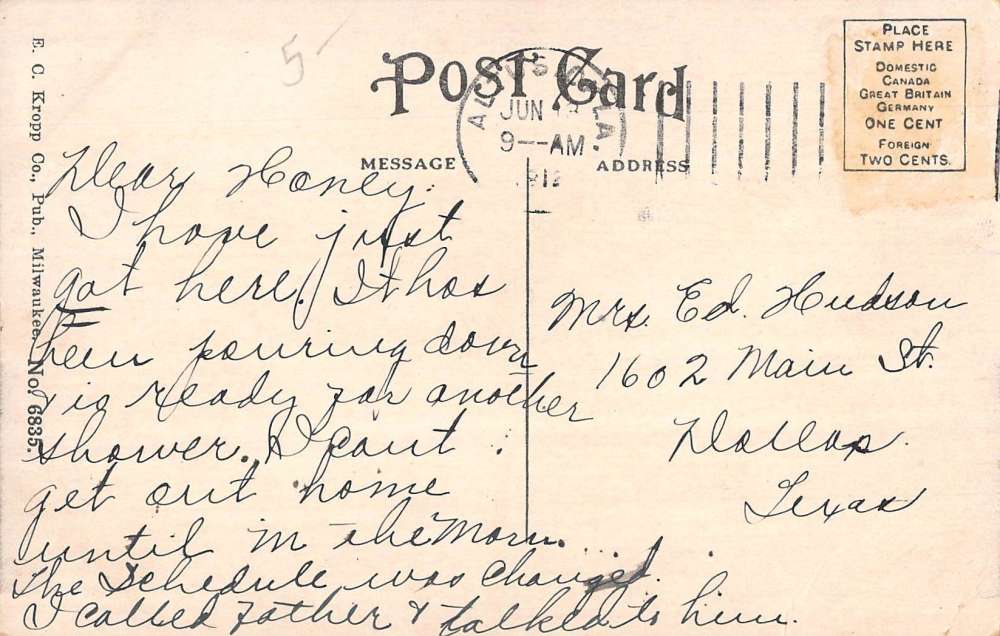 5
Post Card
AUGUSTA, GA.
JUN
9--AM
MESSAGE
ADDRESS
PLACE
STAMP HERE
DOMESTIC
CANADA
GREAT BRITAIN
GERMANY
ONE CENT
FOREIGN
TWO CENTS.
E. C. Kropp Co., Pub., Milwaukee. No. 6835.
Dear Honey.
I have just
got here. It has
been pouring down
& is ready for another
shower. I cant
get out home
until in the Morn.
The Schedule was changed.
I called Father & talked to him.
Mrs. Ed. Hudson
1602 Main St.
Dallas.
Texas